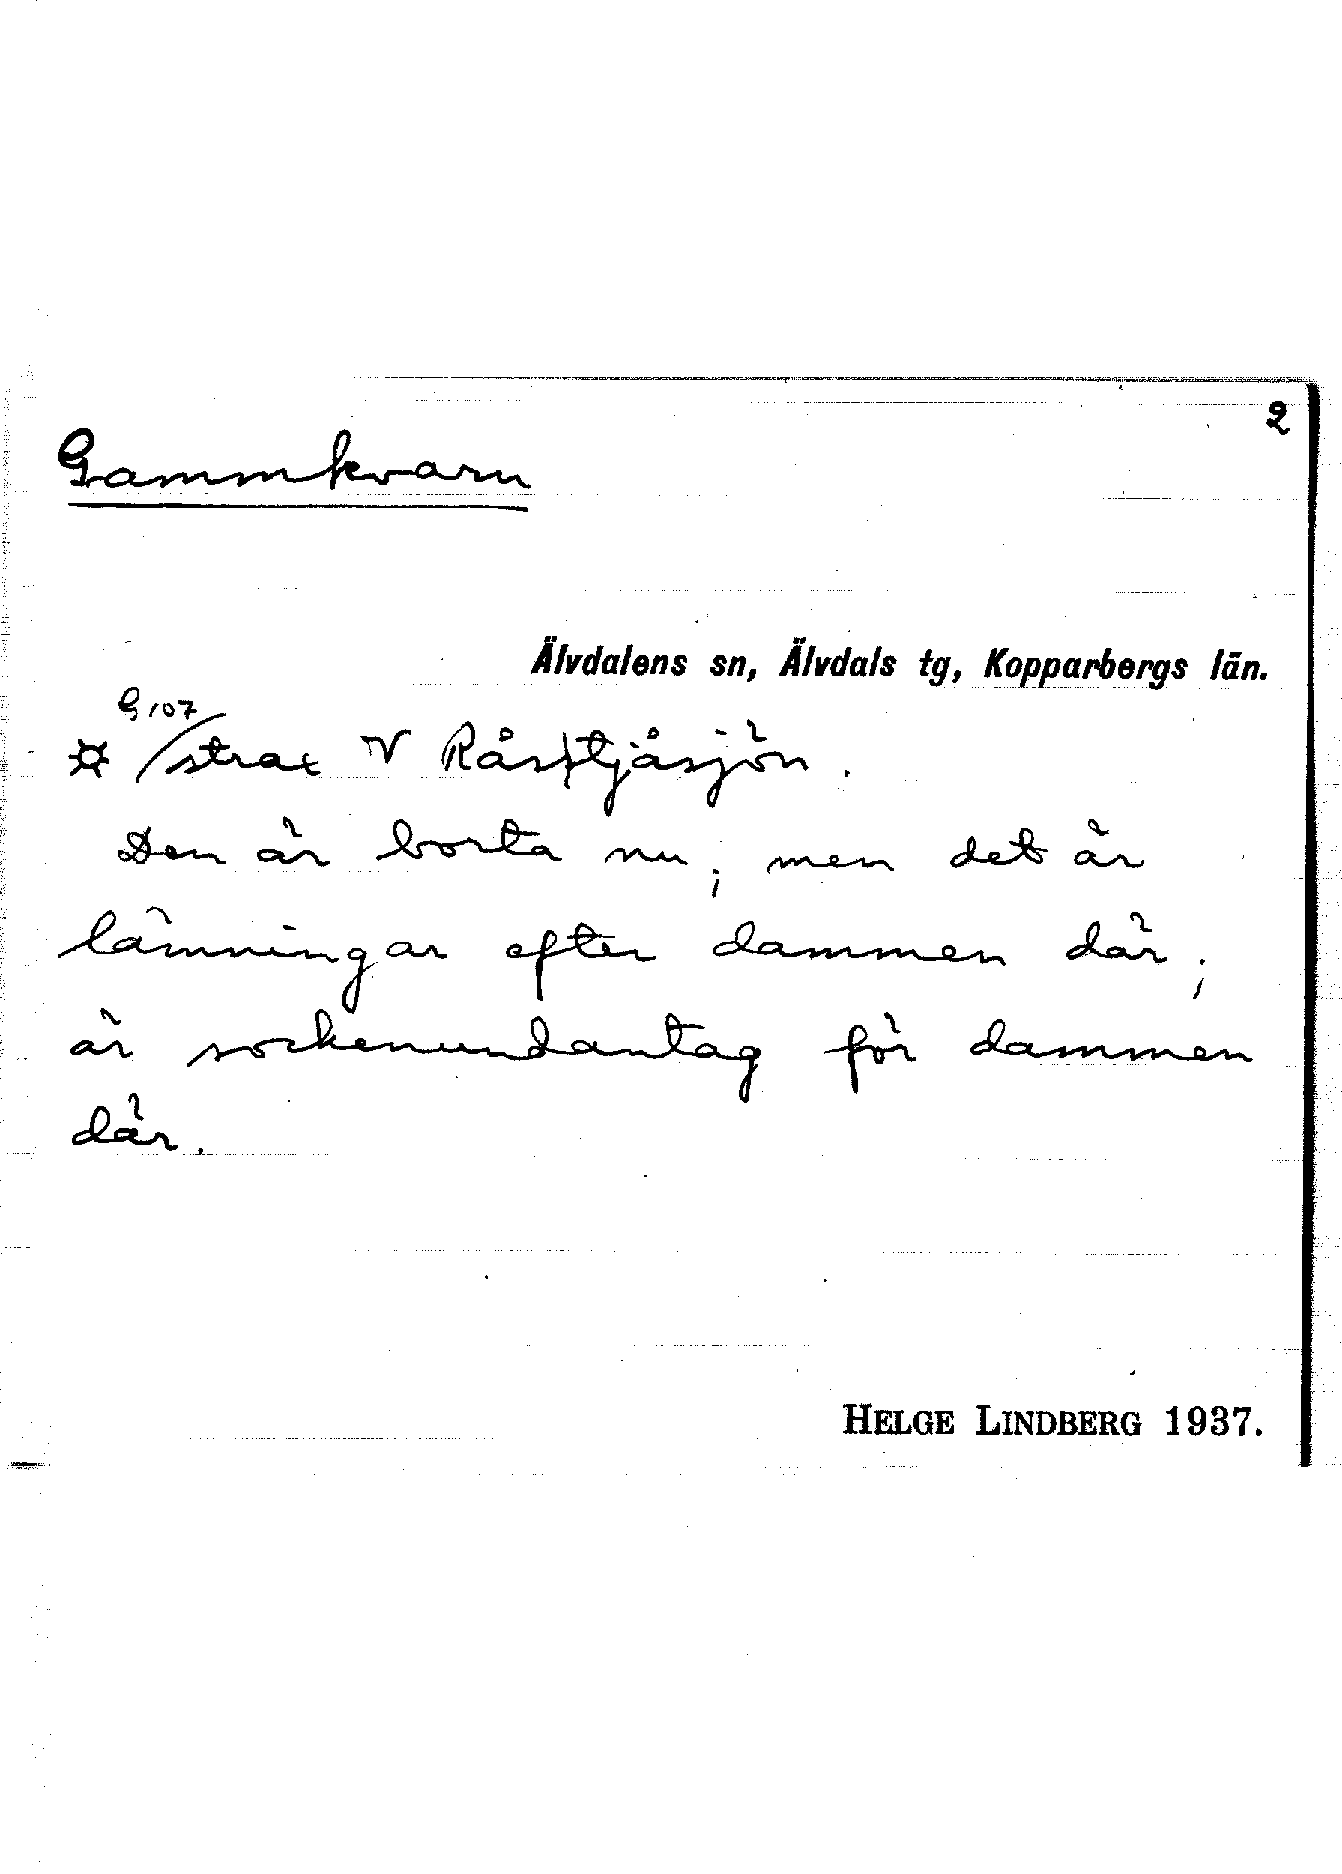 2
Gammkvarn
Älvdalens sn, Älvdals tg, Kopparbergs län.
G 107
¤ / strax V Råstjåsjön.
Den är borta nu; men det är
lämningar efter dammen där;
är sockenundantag för dammen
där.
HELGE LINDBERG 1937.